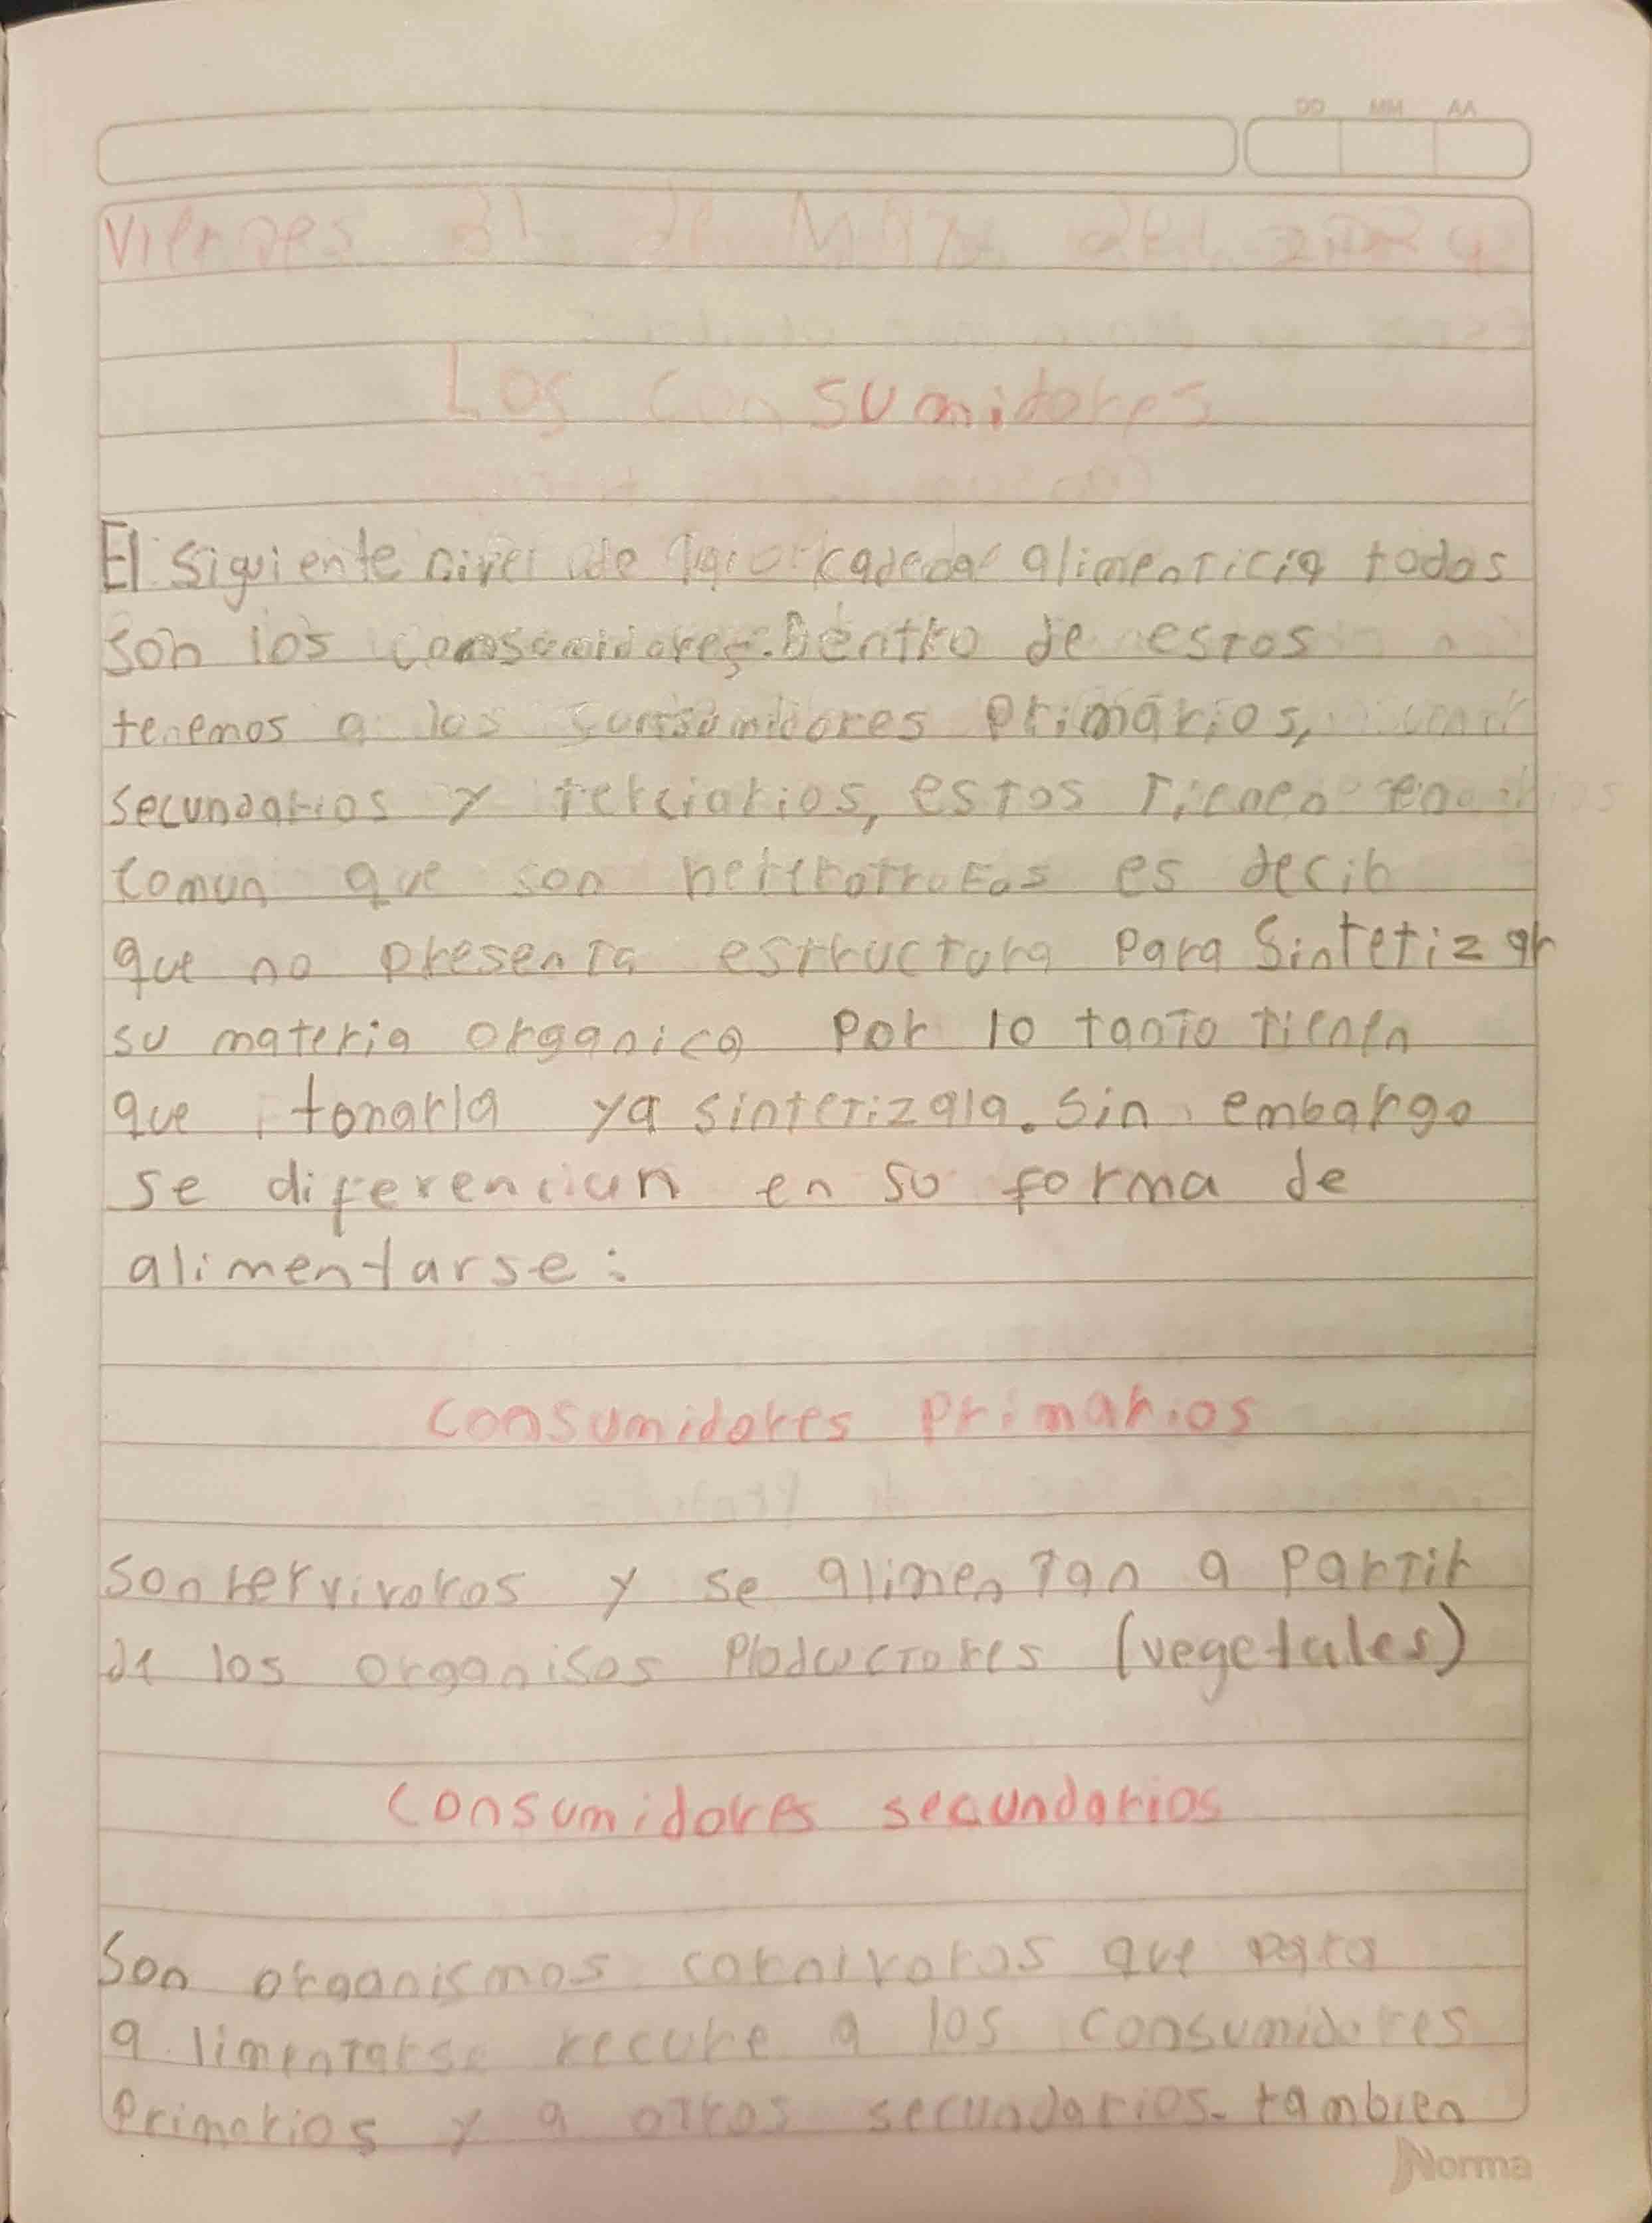 DD MM AA
Viernes 31 de Mayo del 2024
Los consumidores
El siguiente nivel de la cadena alimenticia todos
son los consumidores. Dentro de estos
tenemos a los consumidores primarios,
secundarios y terciarios, estos tienen en
comun que son heterotrofos es decir
que no presenta estructura para sintetizar
su materia organica por lo tanto tienen
que tonarla ya sintetizala. Sin embargo
se diferencian en su forma de
alimentarse:
consumidores primarios
son hervivoros y se alimentan a partir
de los organisos productores (vegetales)
consumidores secundarios
Son organismos carnivoros que para
alimentarse recure a los consumidores
primarios y a otros secundarios. tambien
Norma